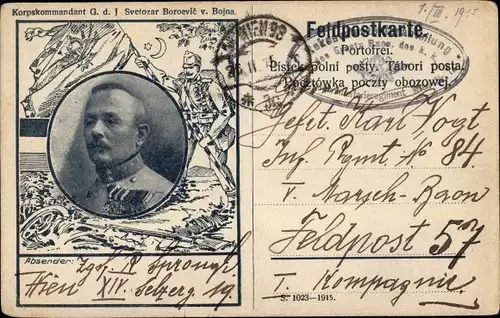 Korpskommandant G. d. J Svetozar Boroevič v. Bojna.
Feldpostkarte.
1./III. 1915
Portofrei.
Lístek polní pošty. Tábori posta.
Pocztówka poczty obozowej.
Gefrt. Karl Vogt
Inf. Rgmt. № 84
V. Marsch-Baon
Feldpost 57
I. Kompagnie.
Absender: Zgsf. R.
Wien XIV. 19.
S. 1023-1915.